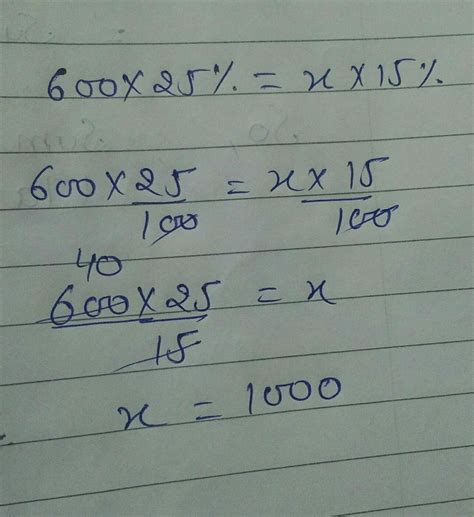 600 × 25 % = x × 15 %
600 × 25 / 100 = x × 15 / 100
40
600 × 25 / 15 = x
x = 1000